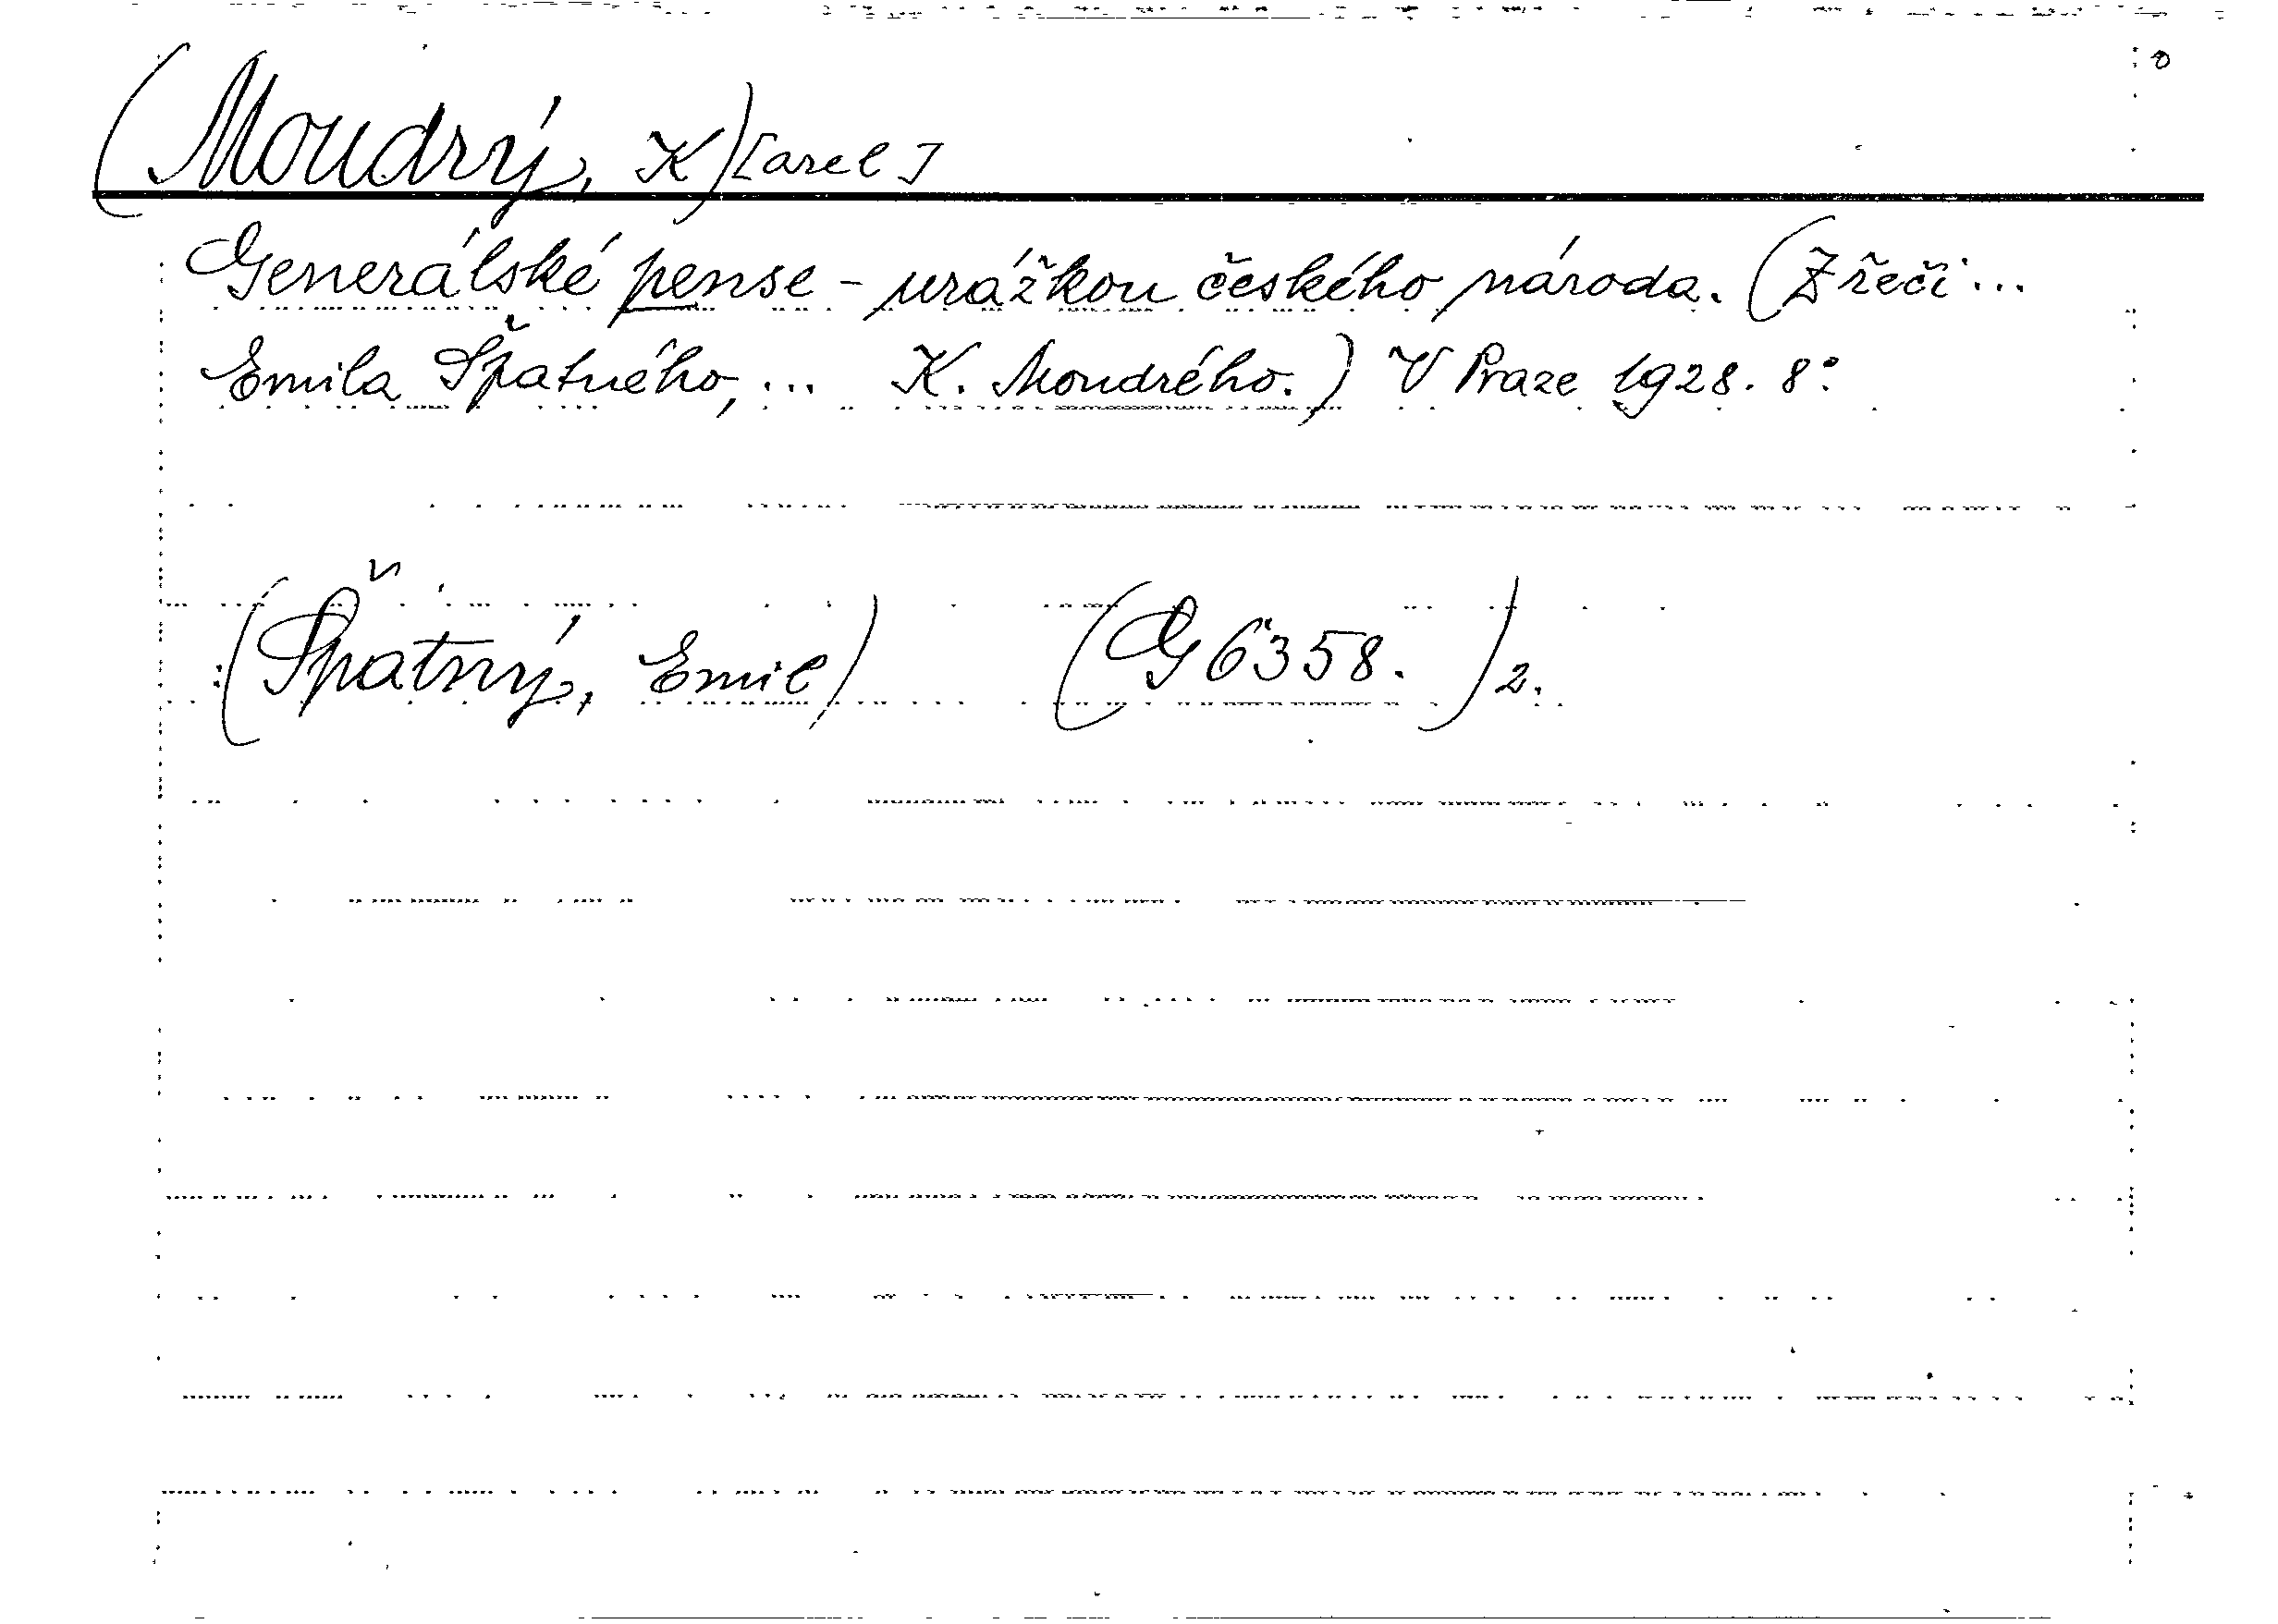 (Moudrý, K)[arel]
Generálské pense - urážkou českého národa. (Z řečí...
Emila Špatného, ... K. Moudrého.) V Praze 1928. 8°.
(Špatný, Emil) (G 6358. )2.